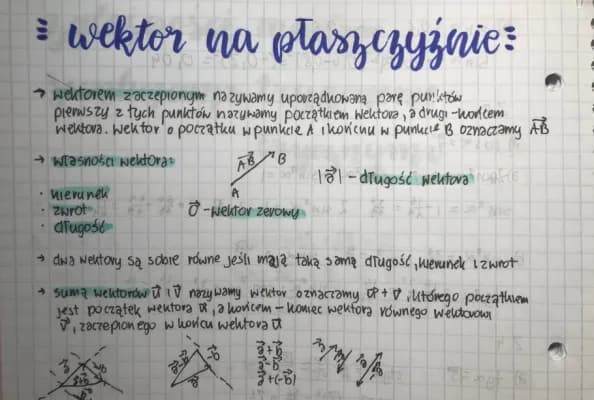 wektor na płaszczyźnie
→ wektorem zaczepionym nazywamy uporządkowaną parę punktów
pierwszy z tych punktów nazywamy początkiem wektora, a drugi - końcem
wektora. wektor o początku w punkcie A i końcu w punkcie B oznaczamy A⃗B⃗
→ własności wektora:
A⃗B⃗ B
A
|a⃗| - długość wektora
· kierunek
· zwrot
· długość
0⃗ - wektor zerowy
→ dwa wektory są sobie równe jeśli mają taką samą długość, kierunek i zwrot
→ sumą wektorów u⃗ i v⃗ nazywamy wektor oznaczamy u⃗ + v⃗, którego początkiem
jest początek wektora u⃗, a końcem - koniec wektora równego wektorowi
v⃗, zaczepionego w końcu wektora u⃗
a⃗+b⃗
a⃗-b⃗
a⃗+(-b⃗)